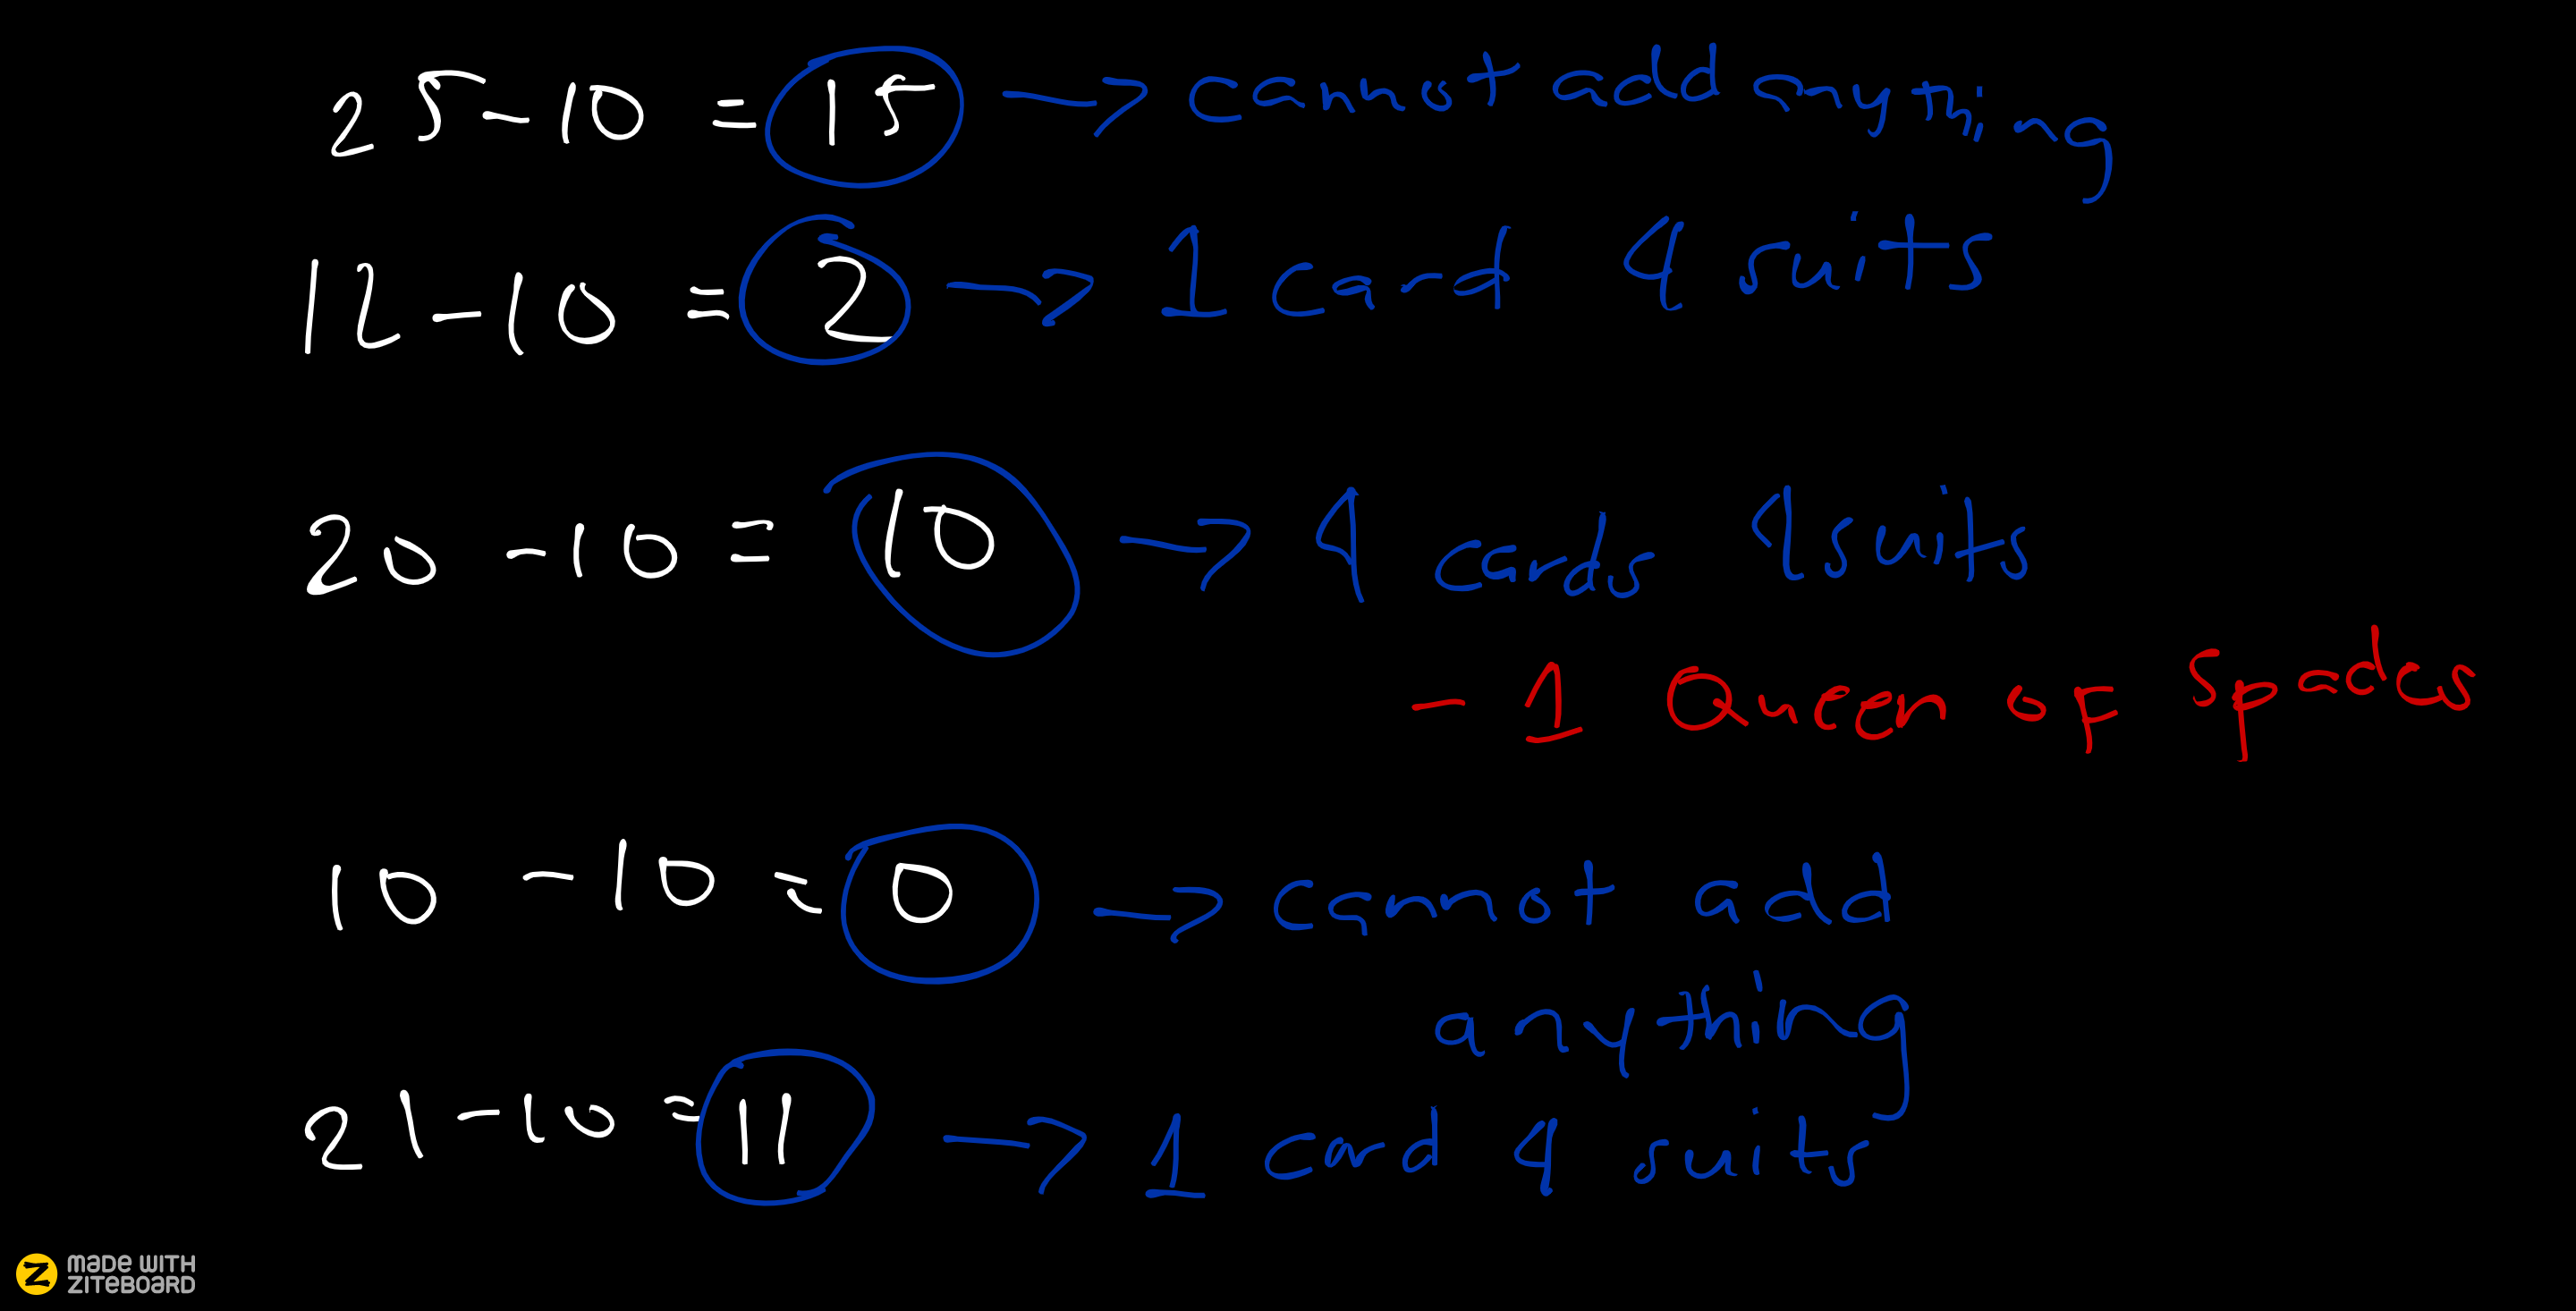 25-10 = 15 → cannot add anything
12-10 = 2 → 1 card 4 suits
20-10 = 10 → 4 cards 4 suits
- 1 Queen of Spades
10 - 10 = 0 → cannot add
anything
21-10 = 11 → 1 card 4 suits
MADE WITH
ZITEBOARD